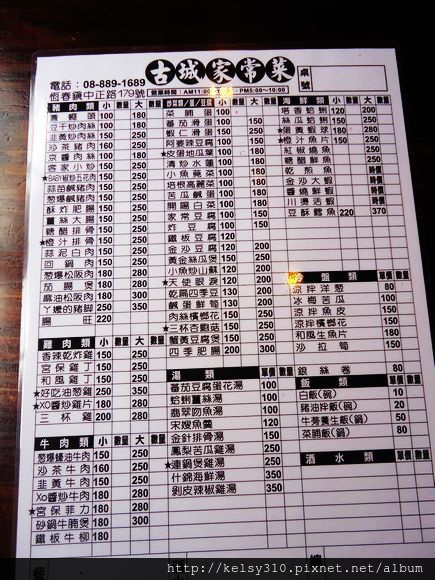 古城家常菜
桌號
電話：08-889-1689
恆春鎮中正路179號
營業時間：AM11:00 PM5:00~10:00
豬肉類 小 數量 大 數量
100 180
豆干炒肉絲 100 180
韭黃炒肉絲 100 180
沙茶豬肉 100 250
京醬肉絲 100 180
客家小炒 150 250
★BABY椒炒五花肉 150 250
蒜苗鹹豬肉 150 250
葱爆鹹豬肉 150 250
酥炸肥腸 150 250
薑絲大腸 150 250
糖醋排骨 150 250
★橙汁排骨 150 250
蒜泥白肉 150 250
回鍋肉 150 250
葱爆松阪肉 180 280
茄腸煲 180 280
麻油松阪肉 180 300
ㄚ嬤的豬腳 250 350
腸旺 220
雞肉類 小 數量 大 數量
香辣乾炸雞 150 250
宮保雞丁 150 250
和風雞丁 150 250
★好吃油葱雞 250 350
★XO醬炒雞片 180 280
三杯雞 200 280
牛肉類 小 數量 大 數量
葱爆蠔油牛肉 150 250
沙茶牛肉 150 250
韭黃牛肉 150 250
Xo醬炒牛肉 180 280
★宮保菲力 180 280
砂鍋牛腩煲 180 300
鐵板牛柳 180
炒菜類/蛋/豆腐 小 數量 大 數量
菜脯蛋 100
番茄滑蛋 100
蝦仁滑蛋 100
阿婆辣豆腐 100
★皮蛋地瓜葉 100
清炒水蓮 100
小魚莧菜 100 180
培根高麗菜 100 180
苦瓜鹹蛋 100 180
開陽白菜 100 180
家常豆腐 100 180
皮蛋豆腐 100
鐵板豆腐 120
金沙豆腐 120 200
黃金絲瓜煲 120 200
小魚炒山蘇 120 200
★天使眼淚 150 200
乾扁四季豆 130 200
鹹蛋鮮筍 150 200
肉絲檳榔花 150 250
★三杯杏鮑菇 150 250
蟹黃豆腐煲 150 250
四季肥腸 200 300
湯類 單價 數量
番茄豆腐蛋花湯 100
蛤蜊薑絲湯 100
翡翠吻魚湯 100
宋嫂魚羹 120
金針排骨湯 150
鳳梨苦瓜雞湯 250
★連鍋煲雞湯 250
什錦海鮮湯 350
剥皮辣椒雞湯 350
海鮮類 小 數量 大 數量
塔香蛤蜊 120 200
絲瓜蛤蜊 150 250
★蛋黃蝦球 180 280
★橙汁魚片 150 250
紅椒燒魚 250
糖醋鮮魚 250
乾煎魚 時價
金沙大蝦 時價
醬燒鮮蝦 時價
川燙活蝦 時價
豆酥鱈魚 220 370
盤類 單價 數量
涼拌洋葱 80
冰梅苦瓜 100
涼拌魚皮 150
涼拌檳榔花 150
和風生魚片 180
沙拉筍 150
銀絲卷 80
飯類 單價 數量
白飯(碗) 10
豬油拌飯(碗) 20
牛蒡養生飯(鍋) 50
菜脯飯(鍋) 80
酒水類 單價 數量
http://kelsy310.pixnet.net/album